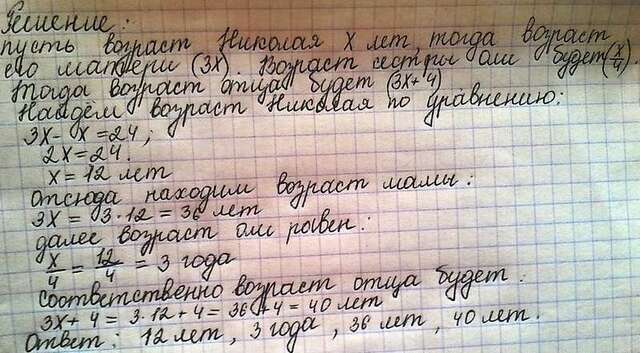 Решение:
пусть возраст Николая x лет, тогда возраст
его матери (3x). Возраст сестры оли будет (x/4).
Тогда возраст отца будет (3x+4)
Найдём возраст Николая по уравнению:
3x - x = 24;
2x = 24.
x = 12 лет
отсюда находим возраст мамы:
3x = 3·12 = 36 лет
далее возраст оли равен:
x/4 = 12/4 = 3 года
соответственно возраст отца будет:
3x + 4 = 3·12 + 4 = 36 + 4 = 40 лет
Ответ: 12 лет, 3 года, 36 лет, 40 лет.